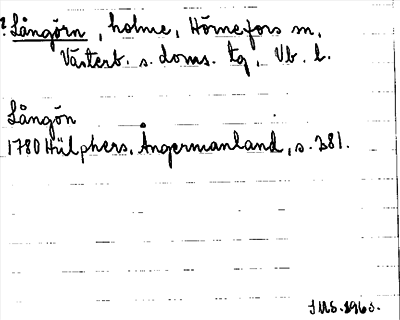 ? Långörn, holme, Hörnefors sn,
Västerb. s. doms. tg, Vb. l.
Långön
1780 Hülphers, Ångermanland, s. 281.